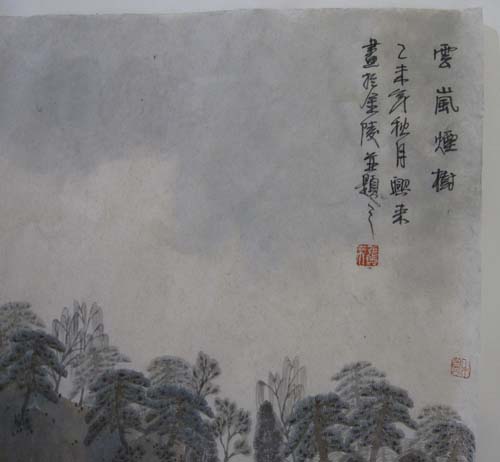 雲嵐煙樹
乙未年秋月興来
畫於金陵並題之